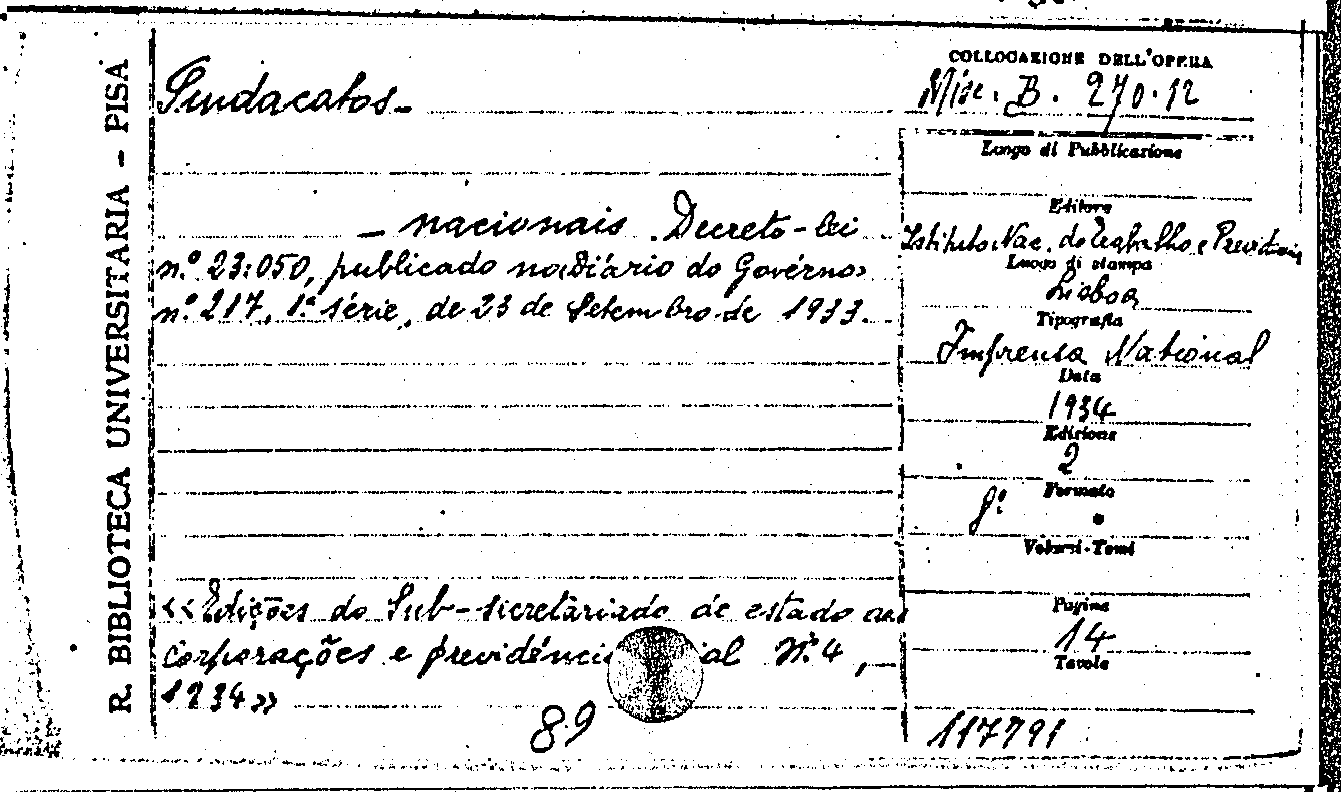 R. BIBLIOTECA UNIVERSITARIA – PISA
Sindacatos –
– nacionais. Decreto-lei
n.º 23:050, publicado no «Diário do Govérno»
n.º 217, 1.ª série, de 23 de Setembro de 1933.
«Edições do Sub-secretáriado de estado das
Corporações e previdência ial N.º 4,
1934»
89
COLLOCAZIONE DELL'OPERA
Misc. B. 270.12
Luogo di Pubblicazione
Editore
Istituto Nac. do Trabalho e Previdencia
Luogo di stampa
Lisboa
Tipografia
Imprensa National
Data
1934
Edizione
2
Formato
8º
Volumi-Tomi
Pagine
14
Tavole
117791